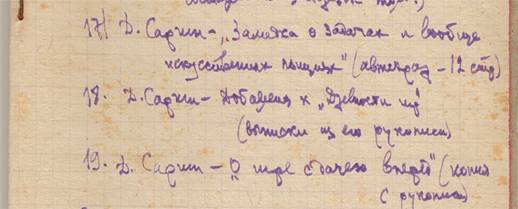 17) Д. Саргин - „Заметка о задачах и вообще
искусственных позициях" (автограф - 12 стр)
18. Д. Саргин - Добавления к „Древности игр"
(выписки из его рукописи)
19. Д. Саргин - „О игре сдачею вперед" (копия
с рукописи)